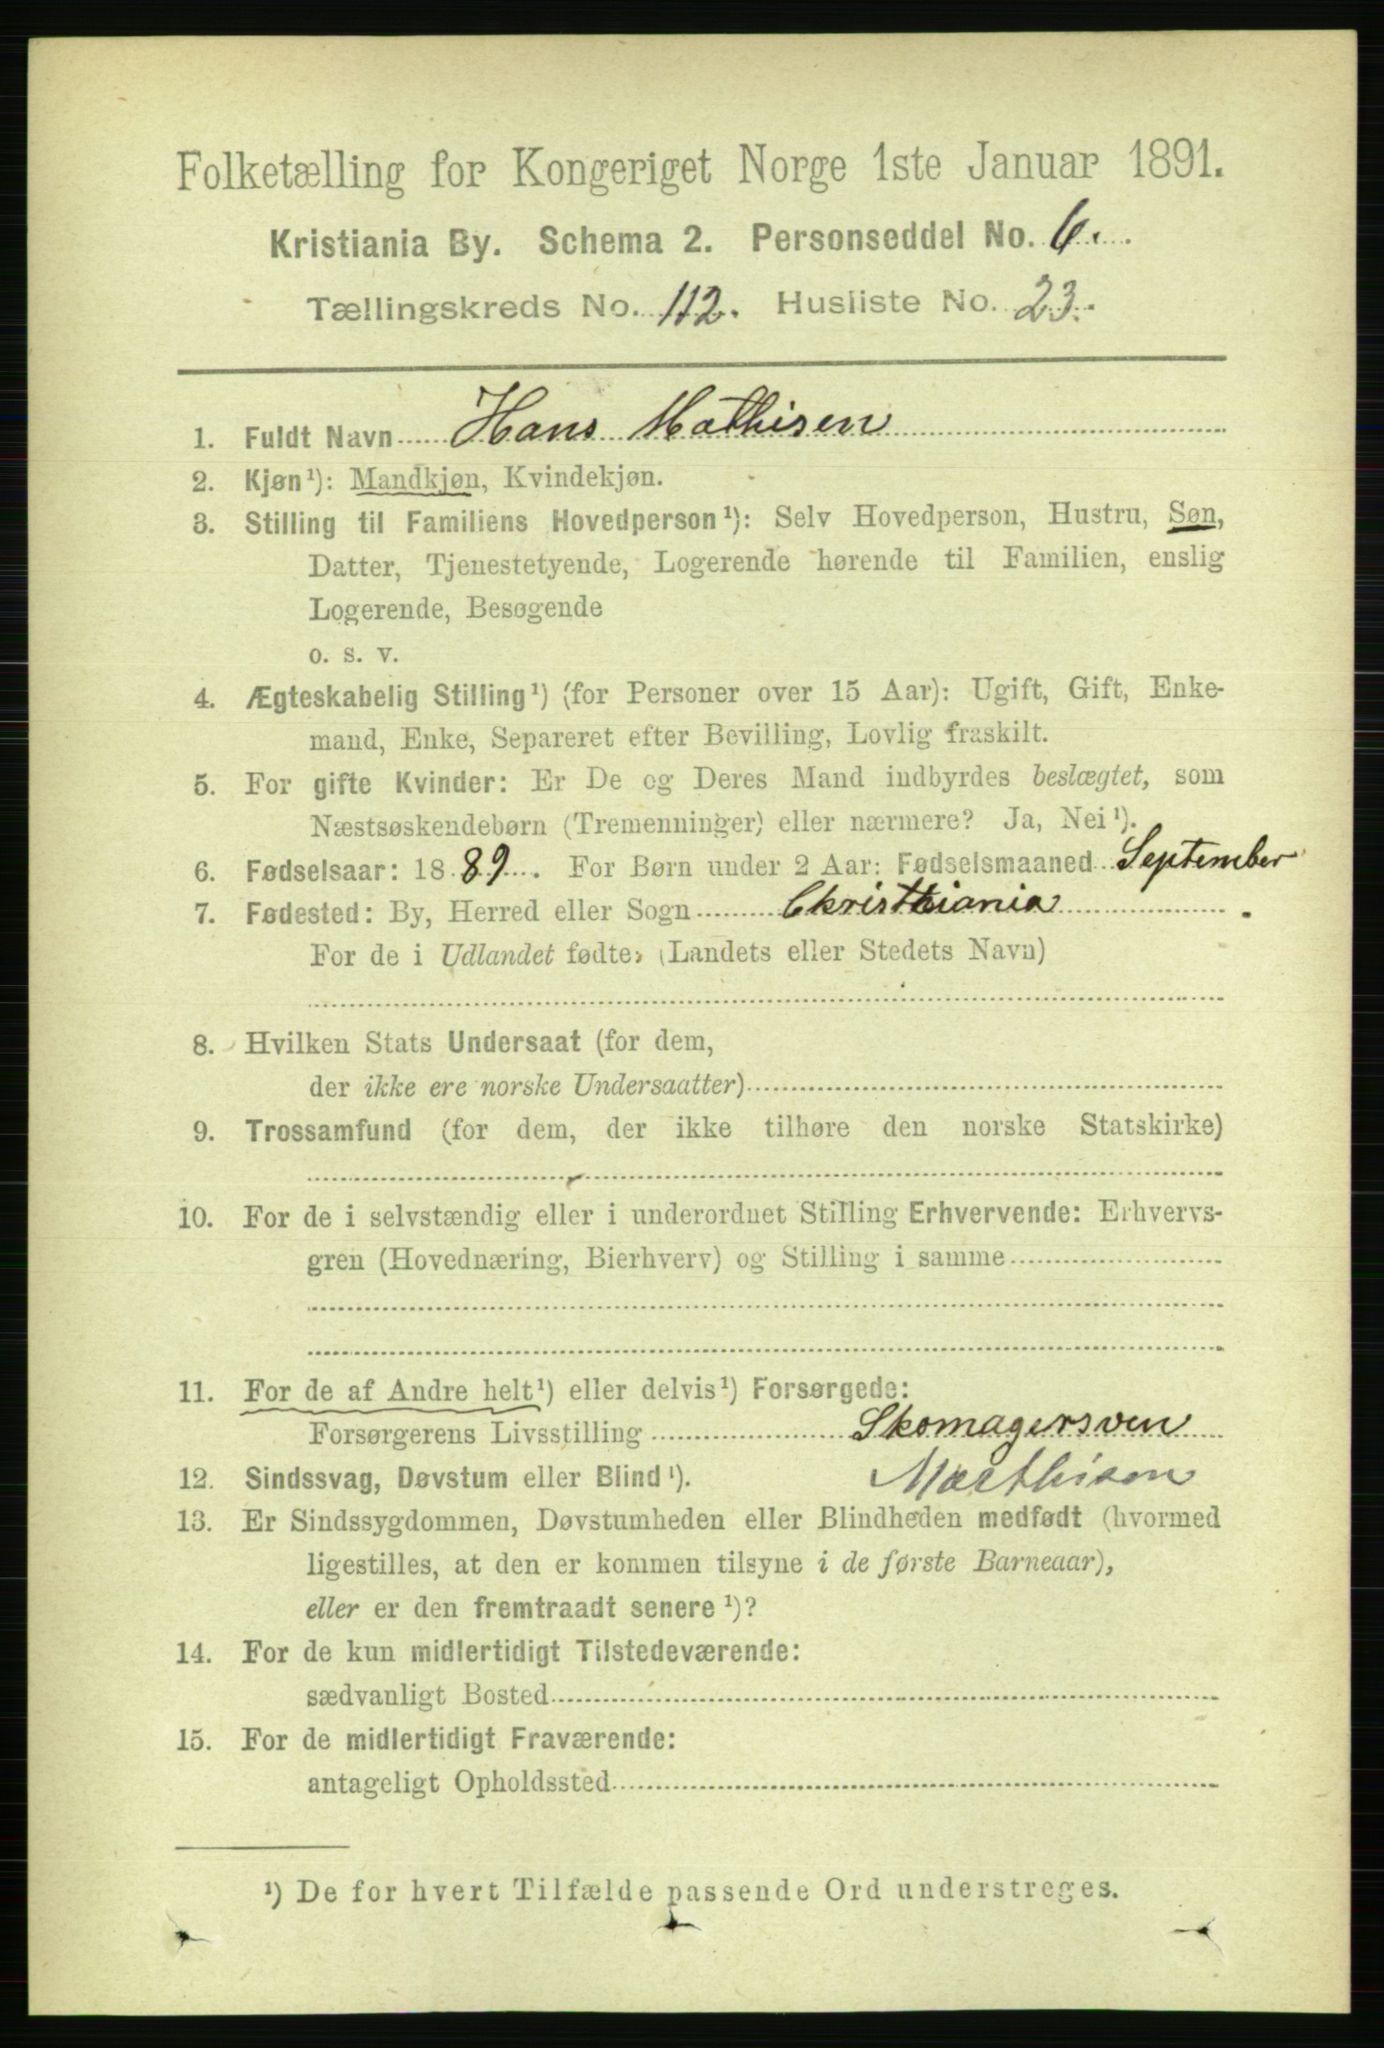 Folketælling for Kongeriget Norge 1ste Januar 1891.
Kristiania By. Schema 2. Personseddel No. 6.
Tællingskreds No. 112. Husliste No. 23.
1. Fuldt Navn Hans Mathisen
2. Kjøn¹): Mandkjøn, Kvindekjøn.
3. Stilling til Familiens Hovedperson¹): Selv Hovedperson, Hustru, Søn,
Datter, Tjenestetyende, Logerende hørende til Familien, enslig
Logerende, Besøgende
o. s. v.
4. Ægteskabelig Stilling¹) (for Personer over 15 Aar): Ugift, Gift, Enke-
mand, Enke, Separeret efter Bevilling, Lovlig fraskilt.
5. For gifte Kvinder: Er De og Deres Mand indbyrdes beslægtet, som
Næstsøskendebørn (Tremenninger) eller nærmere? Ja, Nei¹).
6. Fødselsaar: 1889. For Børn under 2 Aar: Fødselsmaaned September
7. Fødested: By, Herred eller Sogn Christiania.
For de i Udlandet fødte: (Landets eller Stedets Navn)
8. Hvilken Stats Undersaat (for dem,
der ikke ere norske Undersaatter)
9. Trossamfund (for dem, der ikke tilhøre den norske Statskirke)
10. For de i selvstændig eller i underordnet Stilling Erhvervende: Erhvervs-
gren (Hovednæring, Bierhverv) og Stilling i samme
11. For de af Andre helt¹) eller delvis¹) Forsørgede:
Forsørgerens Livsstilling Skomagersven
12. Sindssvag, Døvstum eller Blind¹). Mathisen
13. Er Sindssygdommen, Døvstumheden eller Blindheden medfødt (hvormed
ligestilles, at den er kommen tilsyne i de første Barneaar),
eller er den fremtraadt senere¹)?
14. For de kun midlertidigt Tilstedeværende:
sædvanligt Bosted
15. For de midlertidigt Fraværende:
antageligt Opholdssted
¹) De for hvert Tilfælde passende Ord understreges.